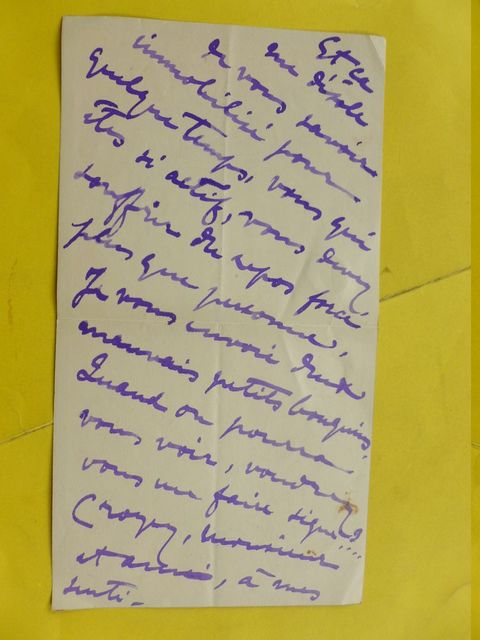 Et ça
me désole
de vous savoir
immobilisé pour
quelque temps, vous qui
êtes si actif, vous devez
souffrir du repos forcé
plus que personne.
Je vous envoie deux
mauvais petits bouquins.
Quand on pourra
vous voir, voudrez
vous me faire signe?...
Croyez, Monsieur
et ami, à mes
senti-